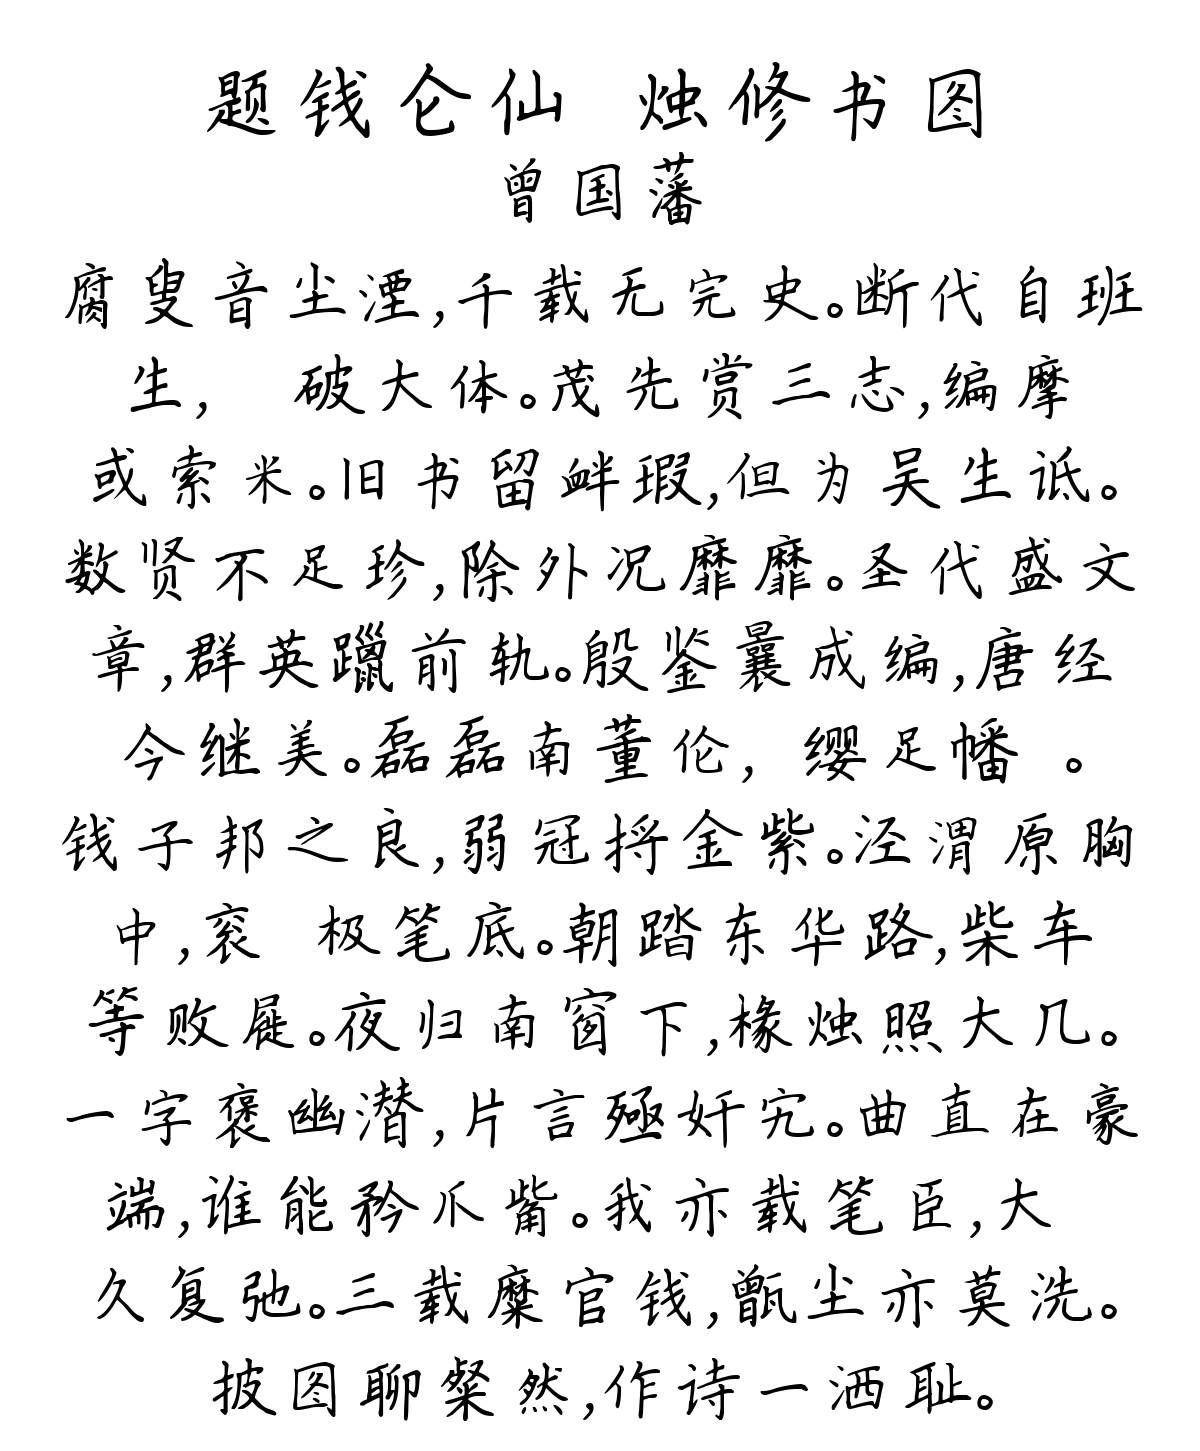 题钱仑仙 烛修书图
曾国藩
腐叟音尘湮,千载无完史。断代自班
生, 破大体。茂先赏三志,编摩
或索米。旧书留衅瑕,但为吴生诋。
数贤不足珍,除外况靡靡。圣代盛文
章,群英躐前轨。殷鉴曩成编,唐经
今继美。磊磊南董伦, 缨足幡 。
钱子邦之良,弱冠捋金紫。泾渭原胸
中,衮 极笔底。朝踏东华路,柴车
等败屣。夜归南窗下,椽烛照大几。
一字褒幽潜,片言殛奸宄。曲直在豪
端,谁能矜爪觜。我亦载笔臣,大
久复弛。三载糜官钱,甑尘亦莫洗。
披图聊粲然,作诗一洒耻。